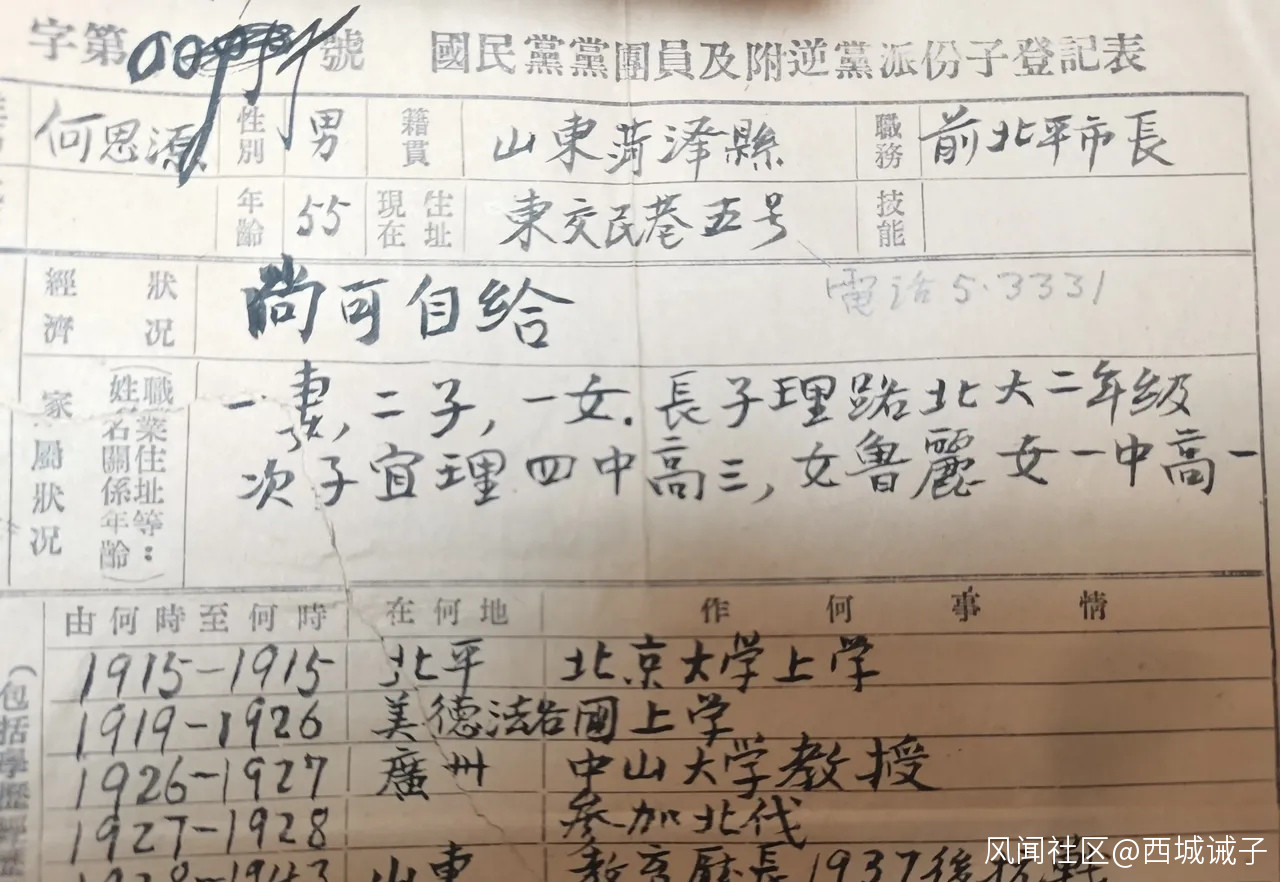 字第00 號 國民黨黨團員及附逆黨派份子登記表
何思源 性別 男 籍貫 山東菏泽縣 職務 前北平市長
年齡 55 現在住址 東交民巷五号 技能
經濟狀况 尚可自给 電话5.3331
家屬狀况 (姓名關係年齡職業住址等:) 一妻,二子,一女.長子理路北大二年级
次子宜理四中高三,女魯麗女一中高一
由何時至何時 在何地 作何事情
(包括學歷經歷
1915-1915 北平 北京大学上学
1919-1926 美德法各國上学
1926-1927 廣州 中山大学教授
1927-1928 參加北伐
1928-1943 山東 教育廳長1937後抗戰
风闻社区@西城诫子